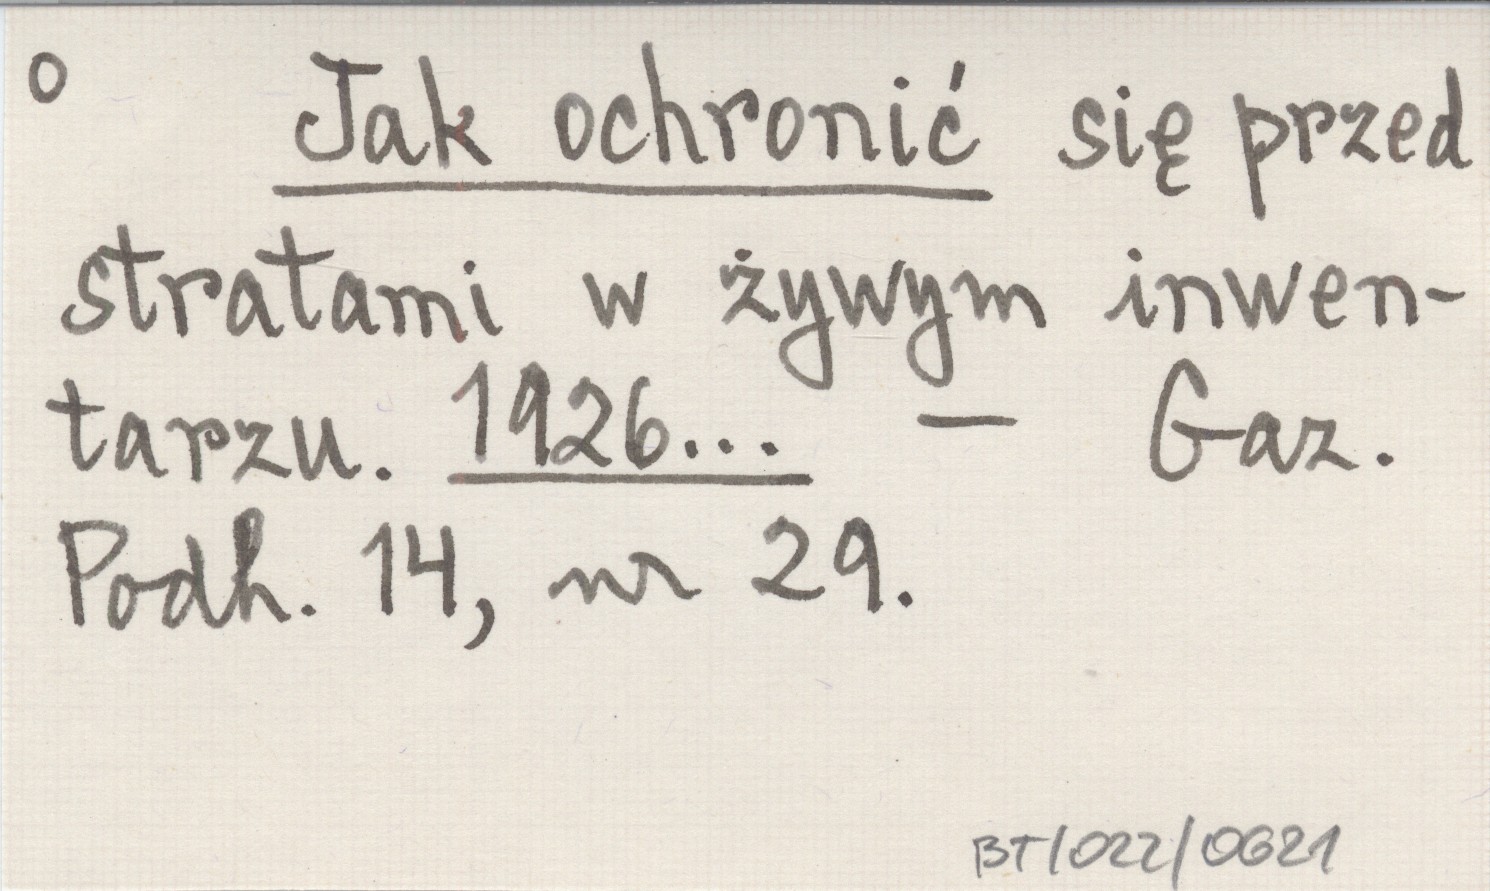 o Jak ochronić się przed
stratami w żywym inwen-
tarzu. 1926... — Gaz.
Podh. 14, nr 29.
BT/022/0621